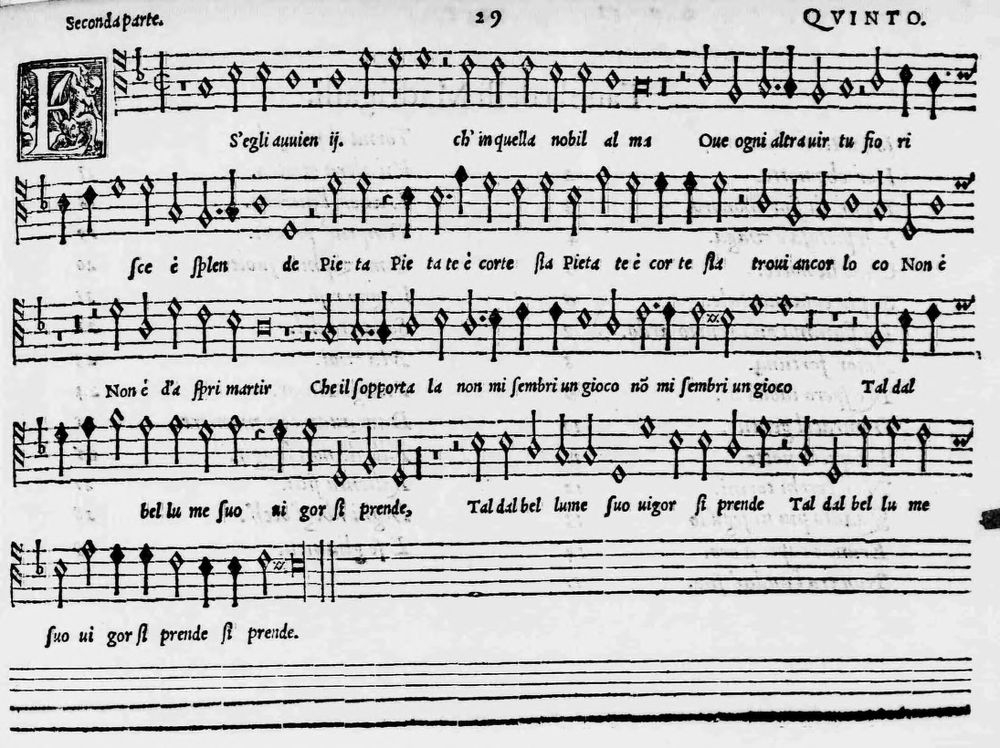 Seconda parte. 29 QVINTO.
S'egli auuien ij. ch'in quella nobil al ma Oue ogni altra uir tu fio ri
sce è splen de Pie ta Pie ta te è corte sia Pieta te è cor te sia troui ancor lo co Non è
Non è d'a spri martir Che il sopporta la non mi sembri un gioco nõ mi sembri un gioco Tal dal
bel lu me suo ui gor si prende, Tal dal bel lume suo uigor si prende Tal dal bel lu me
suo ui gor si prende si prende.